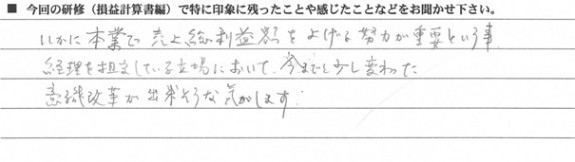 ■ 今回の研修（損益計算書編）で特に印象に残ったことや感じたことなどをお聞かせ下さい。
いかに本業で売上総利益額を上げる努力が重要という事、
経理を担当している立場において、今までと少し変わった
意識改革が出来そうな気がします。